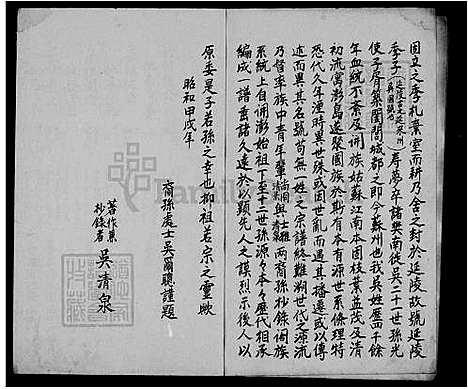 固立之季札棄室而耕乃舍之封於延陵故號延陵
季子壽夢卒諸樊南徙吳二十一世孫光
使子胥築闔閭城都之即今蘇州也我吳姓歷四千餘
年血統不紊及開族姑蘇江南本固枝葉益茂及清
初流寓澎島遂聚國族於斯有本有源世系條理特
恐代久年湮時異世殊或因世亂而遇其播遷或以傳
述而異其名號苟無一姓之宗譜終難溯世代之源流
乃督率族中青年輩 與 兩裔孫抄錄闔族
系統上自開澎始祖下至十世孫源々本々歷代相承
編成一譜垂諸久遠於以顯先人之謨烈示後人以
原委是子若孫之幸也抑祖若宗之靈歟
昭和甲戌年
裔孫處士吳爾聰謹題
著作兼
抄錄者 吳清泉